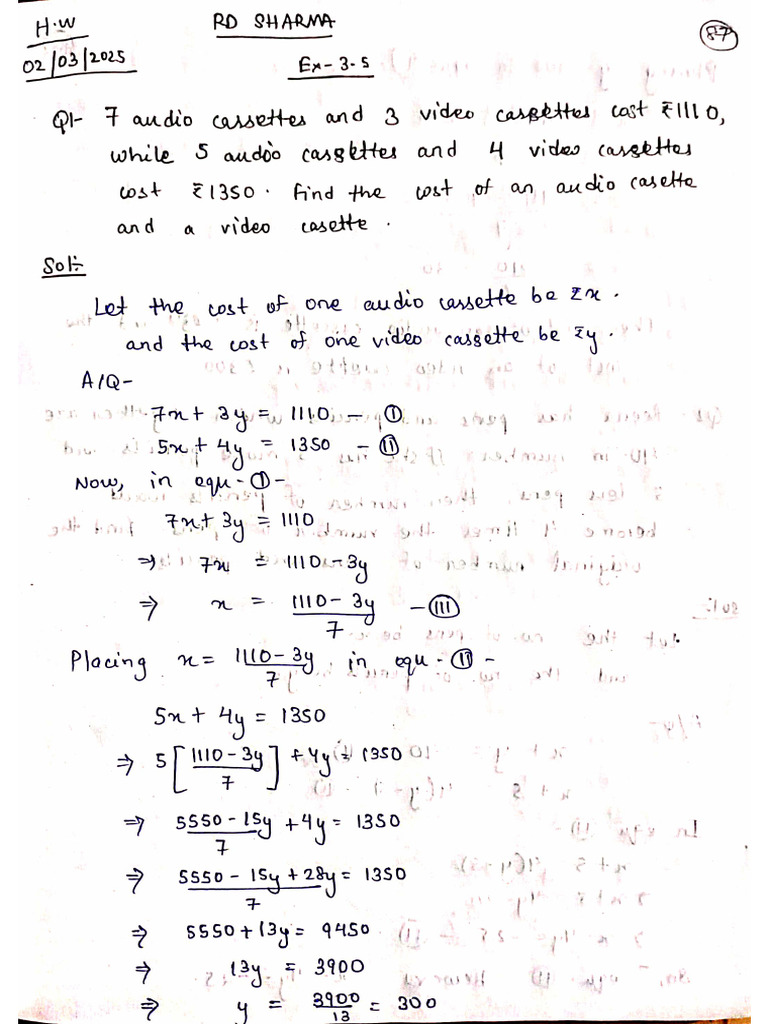 H.W RD SHARMA 87
02/03/2025 Ex-3.5
Q1- 7 audio cassettes and 3 video cassettes cost ₹1110,
while 5 audio cassettes and 4 video cassettes
cost ₹1350. find the cost of an audio casette
and a video casette.
Sol:-
Let the cost of one audio cassette be ₹x.
and the cost of one video cassette be ₹y.
A/Q-
7x + 3y = 1110 - (I)
5x + 4y = 1350 - (II)
Now, in equ-(I)-
7x + 3y = 1110
⇒ 7x = 1110 - 3y
⇒ x = (1110 - 3y)/7 - (III)
Placing x = (1110 - 3y)/7 in equ-(II)-
5x + 4y = 1350
⇒ 5[(1110 - 3y)/7] + 4y = 1350
⇒ (5550 - 15y)/7 + 4y = 1350
⇒ (5550 - 15y + 28y)/7 = 1350
⇒ 5550 + 13y = 9450
⇒ 13y = 3900
⇒ y = 3900/13 = 300